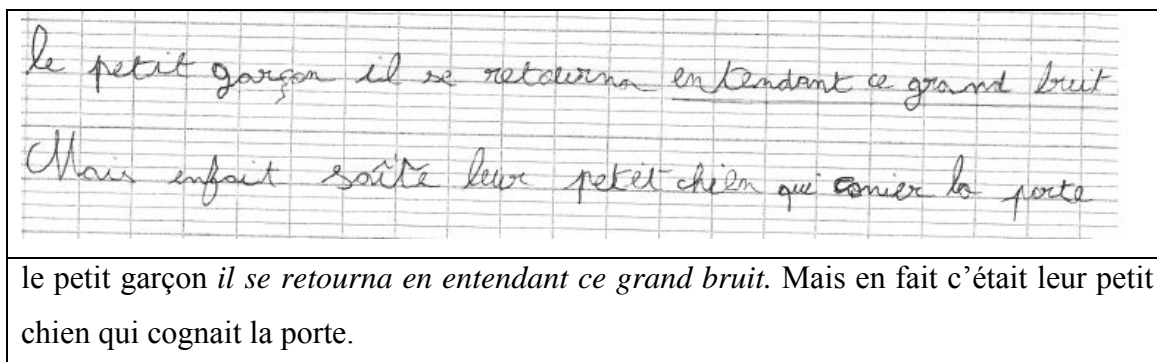 le petit garçon il se retourna en tendant ce grand bruit
Mais enfait soîte leur petit chien qui conier la porte
le petit garçon il se retourna en entendant ce grand bruit. Mais en fait c’était leur petit
chien qui cognait la porte.